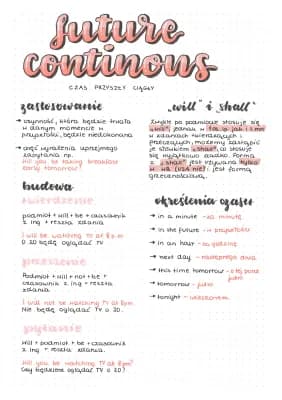 future
continous
CZAS PRZYSZŁY CIĄGŁY
zastosowanie
→ czynność, która będzie trwała
w danym momencie w
przyszłości, będzie niedokonana
→ część wyrażenia uprzejmego
zapytania np.
Will you be taking breakfast
early tomorrow?
budowa
twierdzenie
podmiot + will + be + czasownik
z ing + reszta zdania
I will be watching TV at 8 p.m
O 20 będę oglądać TV
przeczenie
Podmiot + will + not + be +
czasownik z ing + reszta
zdania
I will not be watching TV at 8pm.
Nie będę oglądać TV o 20.
pytanie
Will + podmiot + be + czasownik
z ing + reszta zdania.
Will you be watching TV at 8pm?
Czy będziesz oglądać TV o 20?
„will" i „shall"
zwykle po podmiocie stosuje się
„will", jednak w 1 os. l.p. jak i l.mn
w zdaniach twierdzących i
przeczących, możemy zastąpić
je słówkiem „shall", co stosuje
się wyjątkowo rzadko. Forma
z „shall" jest używana tylko
w
jest formą
grzecznościową.
określenia czasu
→ in a minute - za minutę
→ in the future - w przyszłości
→ in an hour - za godzinę
→ next day - następnego dnia
→ this time tomorrow - o tej porze
jutro
→ tomorrow - jutro
→ tonight - wieczorem